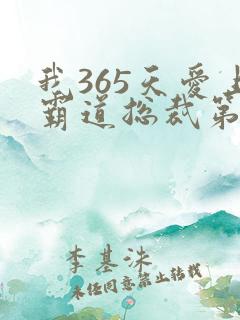 我365天爱上
霸道总裁第
李基洙
未经同意禁止转载